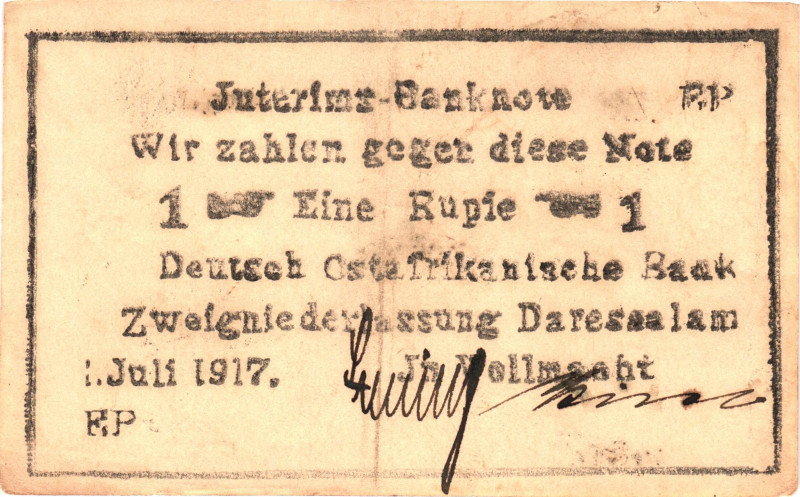 Interims-Banknote EP
Wir zahlen gegen diese Note
1 Eine Rupie 1
Deutsch Ostafrikanische Bank
Zweigniederlassung Daressalam
1.Juli 1917. Jn Vollmacht
EP